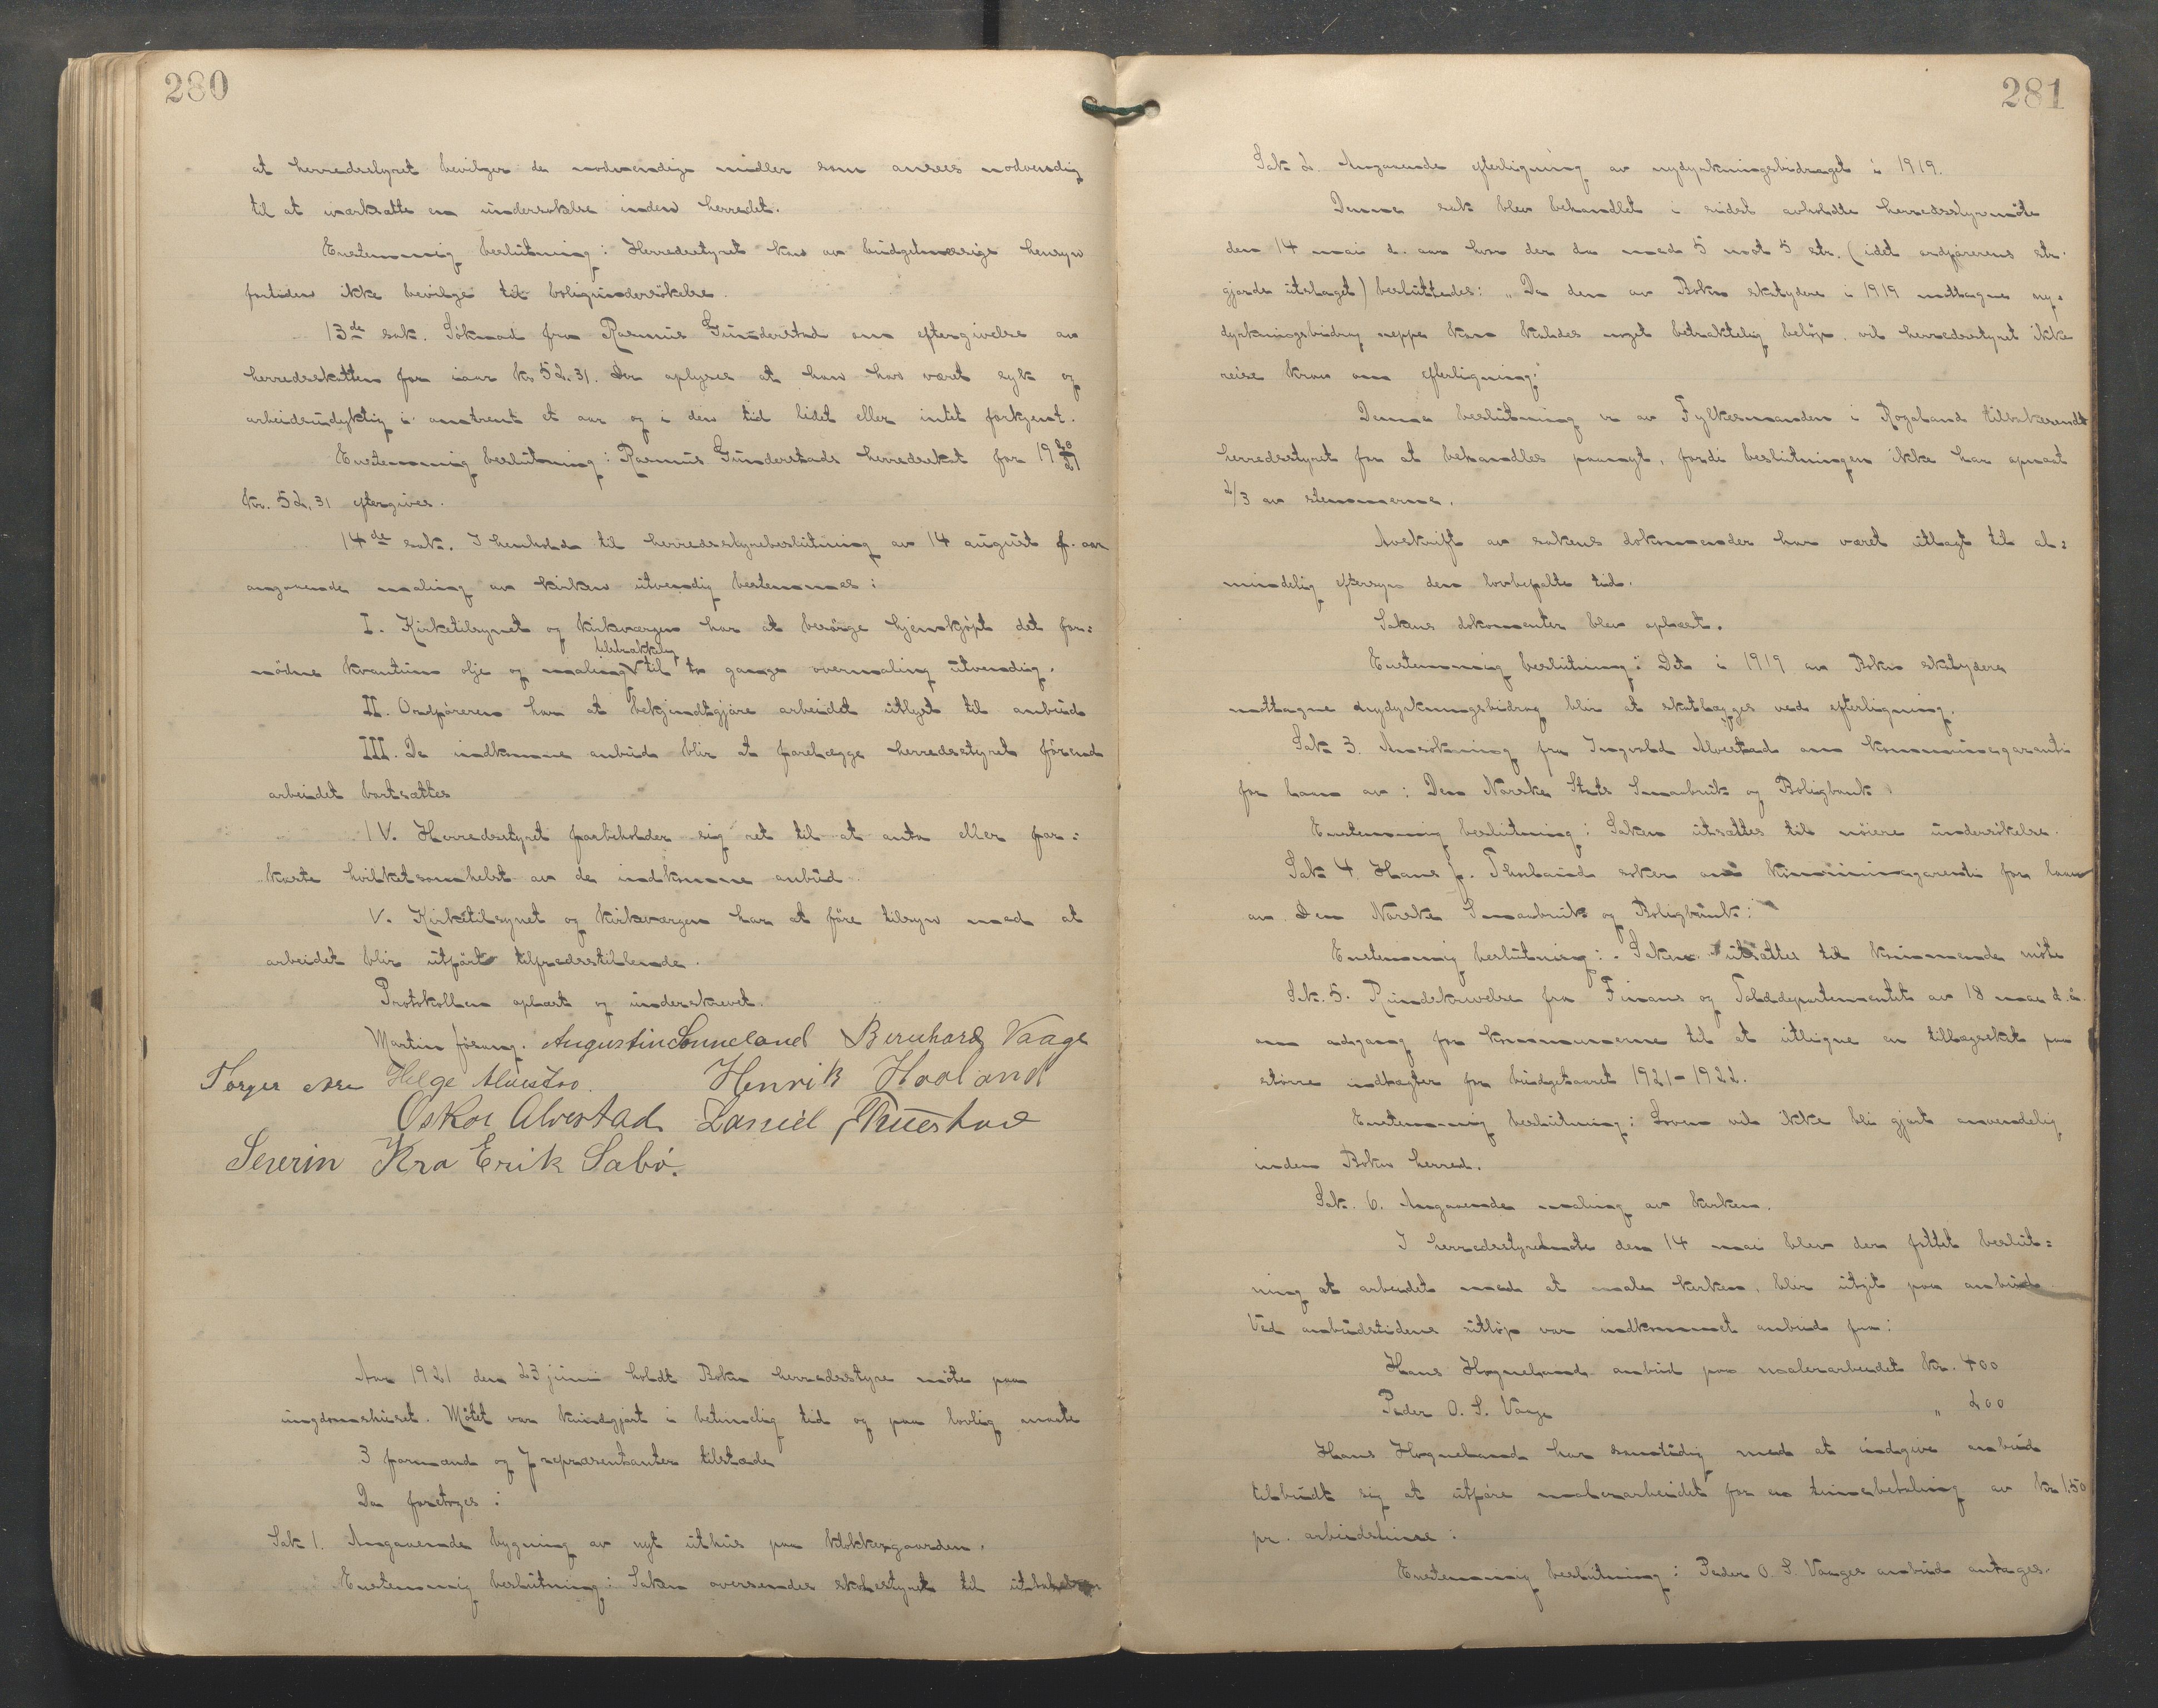 280
at herredsstyret bevilger de nødvendige midler som ansees nødvendig
til at iverksætte en undersøkelse inden herredet.
Enstemmig beslutning: Herredsstyret kan av budgetmæssige hensyn
fortiden ikke bevilge til boligundersökelse.
13de sak. Söknad fra Rasmus Gunderstad om eftergivelse av
herredsskatten for iaar kr 52.31. Der oplyses at han har været syk og
arbeidsudyktig i omtrent et aar og i den tid lidet eller intet fortjent.
Enstemmig beslutning: Rasmus Gunderstads herredsskat for 1920/21
kr. 52,31 eftergives.
14de sak. I henhold til herredsstyrebeslutning av 14 august f. aar
angaaende maling av kirken utvendig bestemmes:
I. Kirketilsynet og kirkeværgen har at besörge hjemkjöpt det for=
nödne kvantum olje og maling tilstrækkelig til to gange overmaling utvendig.
II. Ordföreren har at bekjendtgjöre arbeidet utlyst til anbud
III. De indkomne anbud blir at forelægge herredsstyret förend
arbeidet bortsættes
IV. Herredsstyret forbeholder sig ret til at anta eller for=
kaste hvilketsomhelst av de indkomne anbud.
V. Kirketilsynet og kirkeværgen har at före tilsyn med at
arbeidet blir utfört tilfredsstillende.
Protokollen oplæst og underskrevet.
Martin Augustin Sunneland Bernhard Vaage
Torger Helge Alvestad. Henrik Hooland
Oskar Alvestad Daniel
Severin Kro Erik Sabö.
Aar 1921 den 23 juni holdt Bokn herredsstyre möte paa
ungdomshuset. Mötet var kundgjort i betimelig tid og paa lovlig maate
3 formænd og 7 repræsentanter tilstede
Da foretoges:
Sak 1. Angaaende bygning av nyt uthus paa klokkergaarden.
Enstemmig beslutning: Saken oversendes skolestyret til uttalelse
281
Sak 2. Angaaende efterligning av nydyrkningsbidraget i 1919.
Denne sak blev behandlet i sidst avholdte herredsstyremöte
den 14 mai d. aar hvor der da med 5 mot 5 str. (idet ordförerens str.
gjorde utslaget) besluttedes: „Da den av Bokn skatydere i 1919 mottagne ny=
dyrkningsbidrag neppe kan kaldes noget betraktelig belöp, vil herredsstyret ikke
reise krav om efterligning."
Denne beslutning er av Fylkesmanden i Rogaland tilbakesendt
herredsstyret for at behandles paanyt, fordi beslutningen ikke har opnaat
2/3 av stemmerne.
Avskrift av sakens dokumenter har været utlagt til al=
mindelig eftersyn den lovbefalte tid.
Sakens dokumenter blev oplæst.
Enstemmig beslutning: Det i 1919 av Bokn skatydere
mottagne nydyrkningsbidrag blir at skatlægges ved efterligning.
Sak 3. Ansökning fra Ingvald Alvestad om kommunegaranti
for laan av: Den Norske Stats Smaabruk og Boligbank.
Enstemmig beslutning: Saken utsættes til nöiere undersökelse.
Sak 4. Hans J. söker om kommunegaranti for laan
av Den Norske Smaabruk og Boligbank:
Enstemmig beslutning: Saken utsættes til kommende möte
Sak. 5. Rundskrivelse fra Finans og Tolddepartementet av 18 mai d.å.
om adgang for kommunerne til at utligne en tillægsskat paa
större indtægter for budgetaaret 1921-1922.
Enstemmig beslutning: Loven vil ikke bli gjort anvendelig
inden Bokn herred.
Sak. 6. Angaaende maling av kirken.
I herredsstyremöte den 14 mai blev der fattet beslut=
ning at arbeidet med at male kirken, blir utgit paa anbud
Ved anbudstidens utlöp var indkommet anbud fra:
Hans Hogneland anbud paa malerarbeidet kr. 400
Peder O. S. Vaage „ 200
Hans Hogneland har samtidig med at indgive anbud
tilbudt sig at utföre malerarbeidet for en timebetaling av kr 1.50
pr. arbeidstime:
Enstemmig beslutning: Peder O. S. Vaages anbud antages.